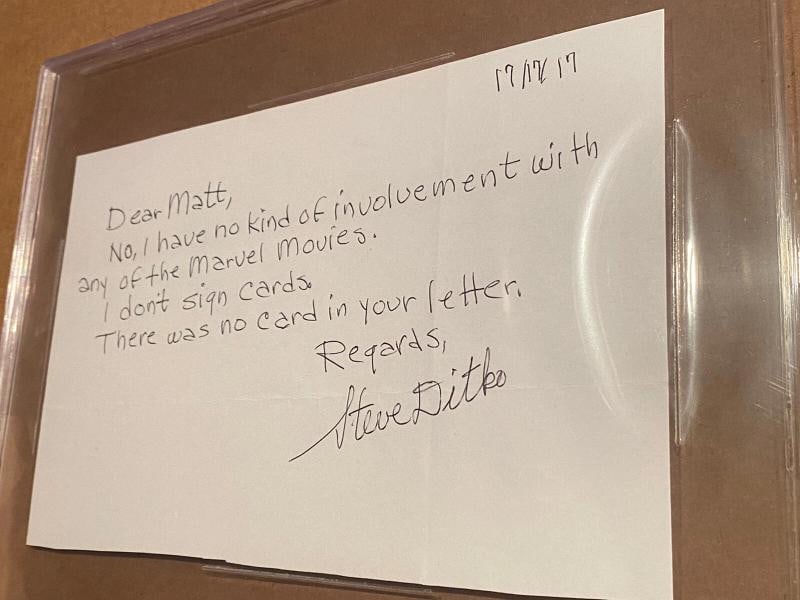 17/17/17
Dear Matt,
No, I have no kind of involvement with
any of the Marvel Movies.
I don't sign cards.
There was no card in your letter.
Regards,
Steve Ditko